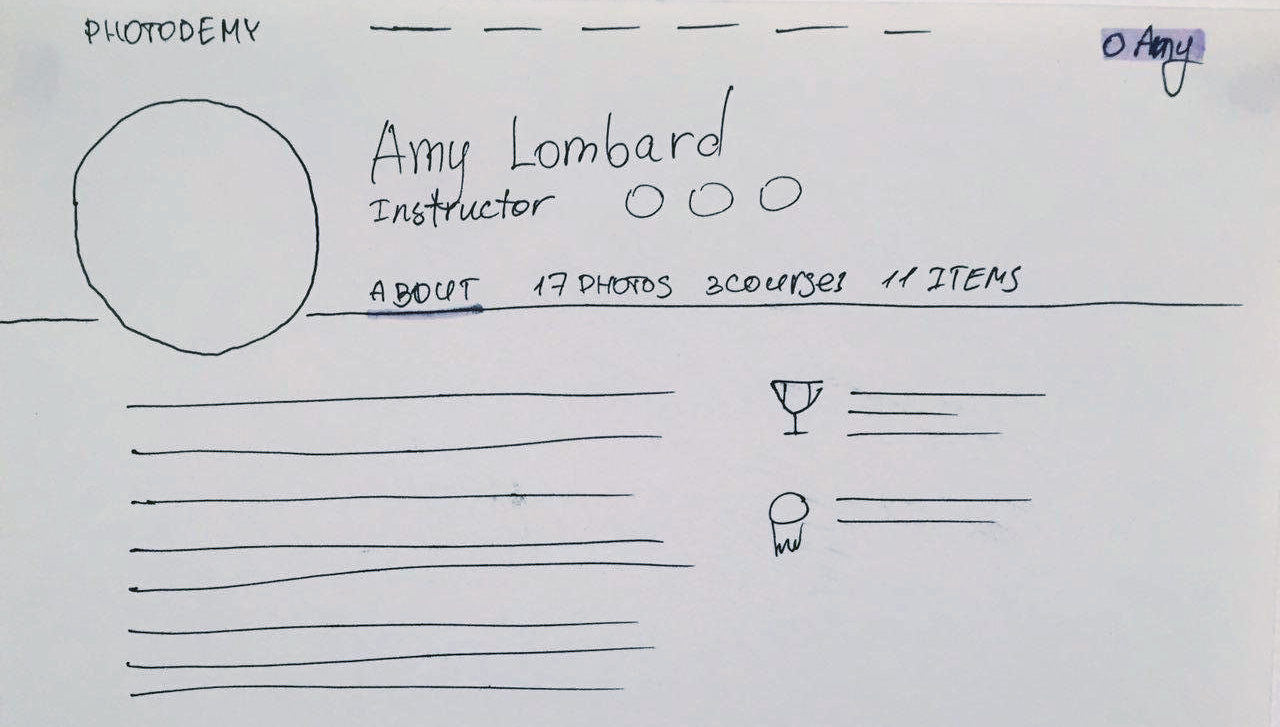 PHOTODEMY
Amy
Amy Lombard
Instructor
ABOUT 17 PHOTOS 3 courses 11 ITEMS